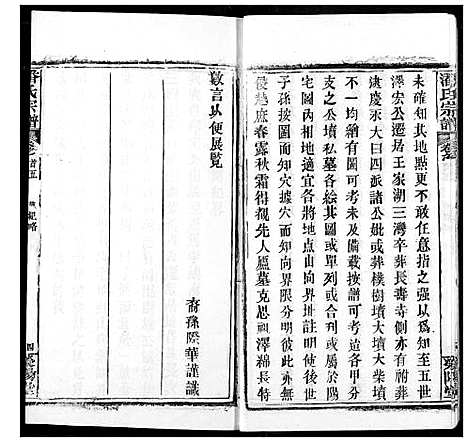 潘氏宗譜
未確知其地點更不敢任意指之强以爲知至五世
澤宏公遷居王家湖三灣卒葬長壽寺側亦有祔葬
逮慶宗大曰四派諸公妣或葬樸樹墳大墳大柴墳
不一均緣可考未及備載按譜可考遠各甲分
支之公墳私墓各繪其圖或單列或共載陰屬於陽
宅圖內者地相適宜各將地点山向界址註明使後世
子孫按圖而知穴據穴而知向界限分明彼此無嫌
侵越庶春露秋霜得覩先人廬墓克思祖澤綿長特
敘言以便展覽
裔孫陞華謹識
潘氏宗譜
首五
紀略
四